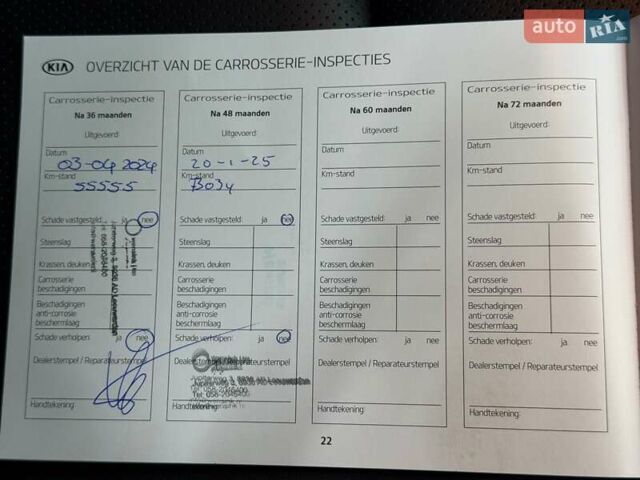 auto RIA.com
KIA OVERZICHT VAN DE CARROSSERIE-INSPECTIES
Carrosserie-inspectie
Na 36 maanden
Uitgevoerd:
Datum
03-04 2024
Km-stand
55555
Schade vastgesteld: ja nee
Steenslag
Krassen, deuken
Carrosserie
beschadigingen
Beschadigingen
anti-corrosie
beschermlaag
Schade verholpen: ja nee
Dealerstempel / Reparateurstempel
Handtekening:
Carrosserie-inspectie
Na 48 maanden
Uitgevoerd:
Datum
20-1-25
Km-stand
Schade vastgesteld: ja nee
Steenslag
Krassen, deuken
Carrosserie
beschadigingen
Beschadigingen
anti-corrosie
beschermlaag
Schade verholpen: ja nee
Dealerstempel / Reparateurstempel
Handtekening:
Carrosserie-inspectie
Na 60 maanden
Uitgevoerd:
Datum
Km-stand
Schade vastgesteld: ja nee
Steenslag
Krassen, deuken
Carrosserie
beschadigingen
Beschadigingen
anti-corrosie
beschermlaag
Schade verholpen: ja nee
Dealerstempel / Reparateurstempel
Handtekening:
Carrosserie-inspectie
Na 72 maanden
Uitgevoerd:
Datum
Km-stand
Schade vastgesteld: ja nee
Steenslag
Krassen, deuken
Carrosserie
beschadigingen
Beschadigingen
anti-corrosie
beschermlaag
Schade verholpen: ja nee
Dealerstempel / Reparateurstempel
Handtekening:
22